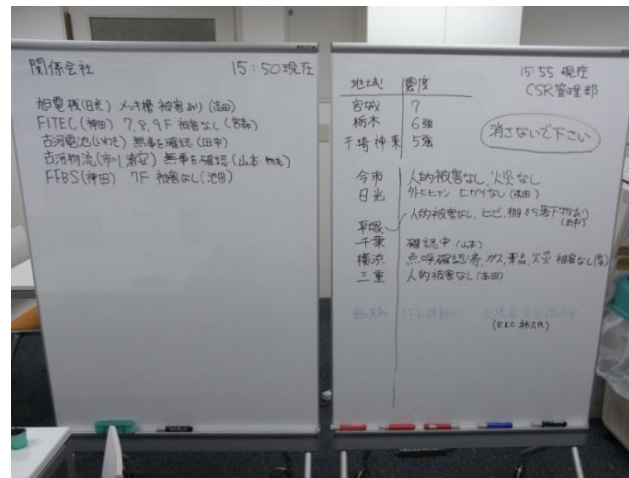 関係会社 15:50現在
旭電機(日光) メッキ槽 被害あり (志田)
FITEC(神田) 7,8,9F 被害なし (宮森)
古河電池(いわき) 無事を確認 (田中)
古河物流(市川,浦安) 無事を確認 (山本
FFBS(神田) 7F 被害なし (池田)
15:55 現在
CSR管理部
地域 震度
宮城 7
栃木 6強
千埼神東 5強
消さないで下さい
今市 人的被害なし,火災なし
日光 ヒガイなし
平塚 人的被害なし,ヒビ,棚から落下物あり
千葉 確認中 (山本)
横浜 点呼確認済,ガス,薬品,火災 被害なし
三重 人的被害なし (志田)